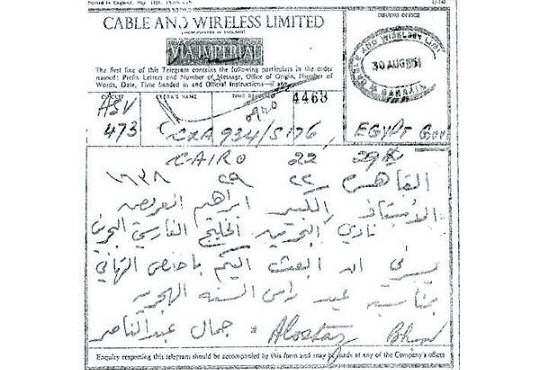 CABLE AND WIRELESS LIMITED
(INCORPORATED IN ENGLAND)
VIA IMPERIAL
The first line of this Telegram contains the following particulars in the order
named: Prefix Letters and Number of Message, Office of Origin, Number of
Words, Date, Time handed in and Official Instructions—if any.
CABLE AND WIRELESS LTD.
30 AUG
BAHRAIN
CLERK'S NAME
TIME RECEIVED
4468
0920
ASV
473
CXA 934/S176
EGYPT Govt
CAIRO 22 29
القاهرة ٢٢ ٢٩ ١٦٣٨
الأستاذ الكبير ابراهيم العريض
نادي البحرين الخليج الفارسي البحرين
يسرني ان ابعث اليكم باخلص التهاني
بمناسبة عيد راس السنه الهجريه
جمال عبد الناصر
Enquiry respecting this telegram should be accompanied by this form and may be made at any of the Company's offices